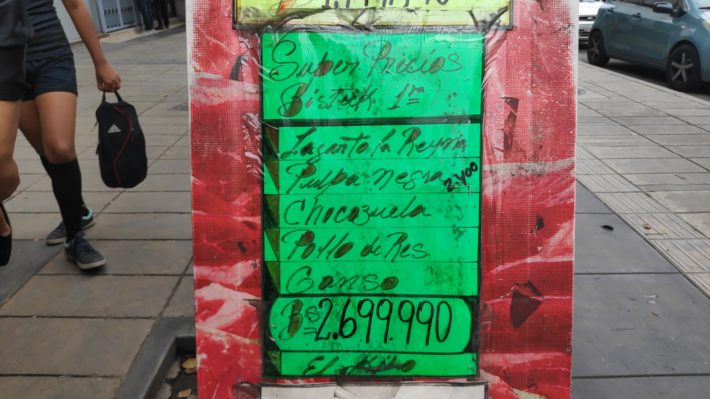 Super Precios
Bisteck 1ra
Lagarto la Reyna
Pulpa negra 2.400
Chocozuela
Pollo de Res
Ganso
Bs 2.699.990
El
adidas